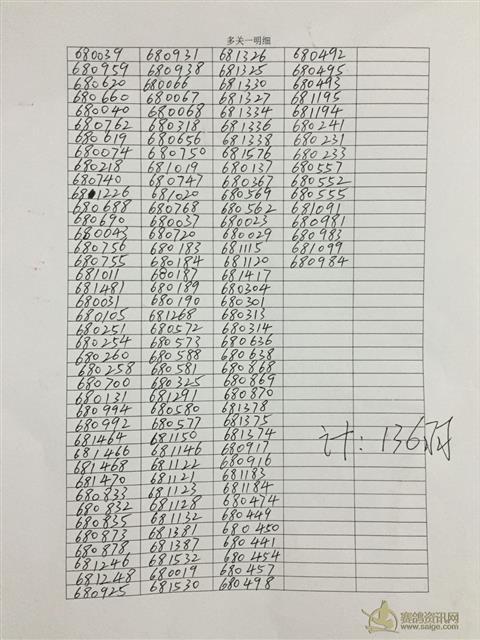 多关一明细
680039 680931 681326 680492
680959 680938 681325 680495
680620 680066 681330 680493
680660 680067 681327 681195
680040 680068 681334 681194
680762 680318 681336 680241
680619 680656 681338 680231
680074 680750 681576 680233
680218 681019 680137 680557
680740 680747 680367 680552
681226 681020 680569 680555
680688 680768 680562 681091
680690 680037 680023 680981
680043 680720 680029 680983
680756 680183 681115 681099
680755 680184 681120 680984
681011 680187 681417
681481 680189 680304
680031 680190 680301
680105 681268 680313
680251 680572 680314
680254 680573 680636
680260 680588 680638
680258 680581 680868
680700 680325 680869
680131 681291 680870
680994 680580 681378
680992 680577 681375
681464 681150 681374
681466 681146 680917
681468 681122 680916
681470 681121 681183
680833 681123 681184
680832 681128 680474
680835 681132 680449
680873 681381 680450
680878 681387 680441
681246 681532 680454
681248 680019 680457
680925 681530 680498
计：136羽
赛鸽资讯网
www.saige.com